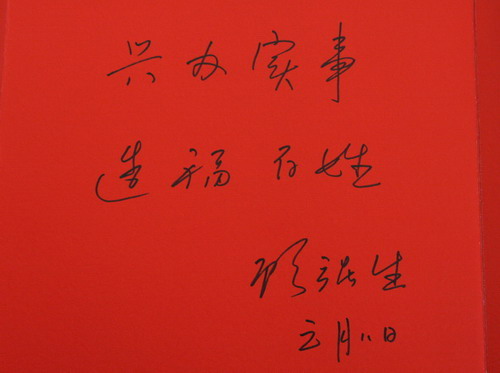 兴办实事
造福百姓
顾强生
三月八日